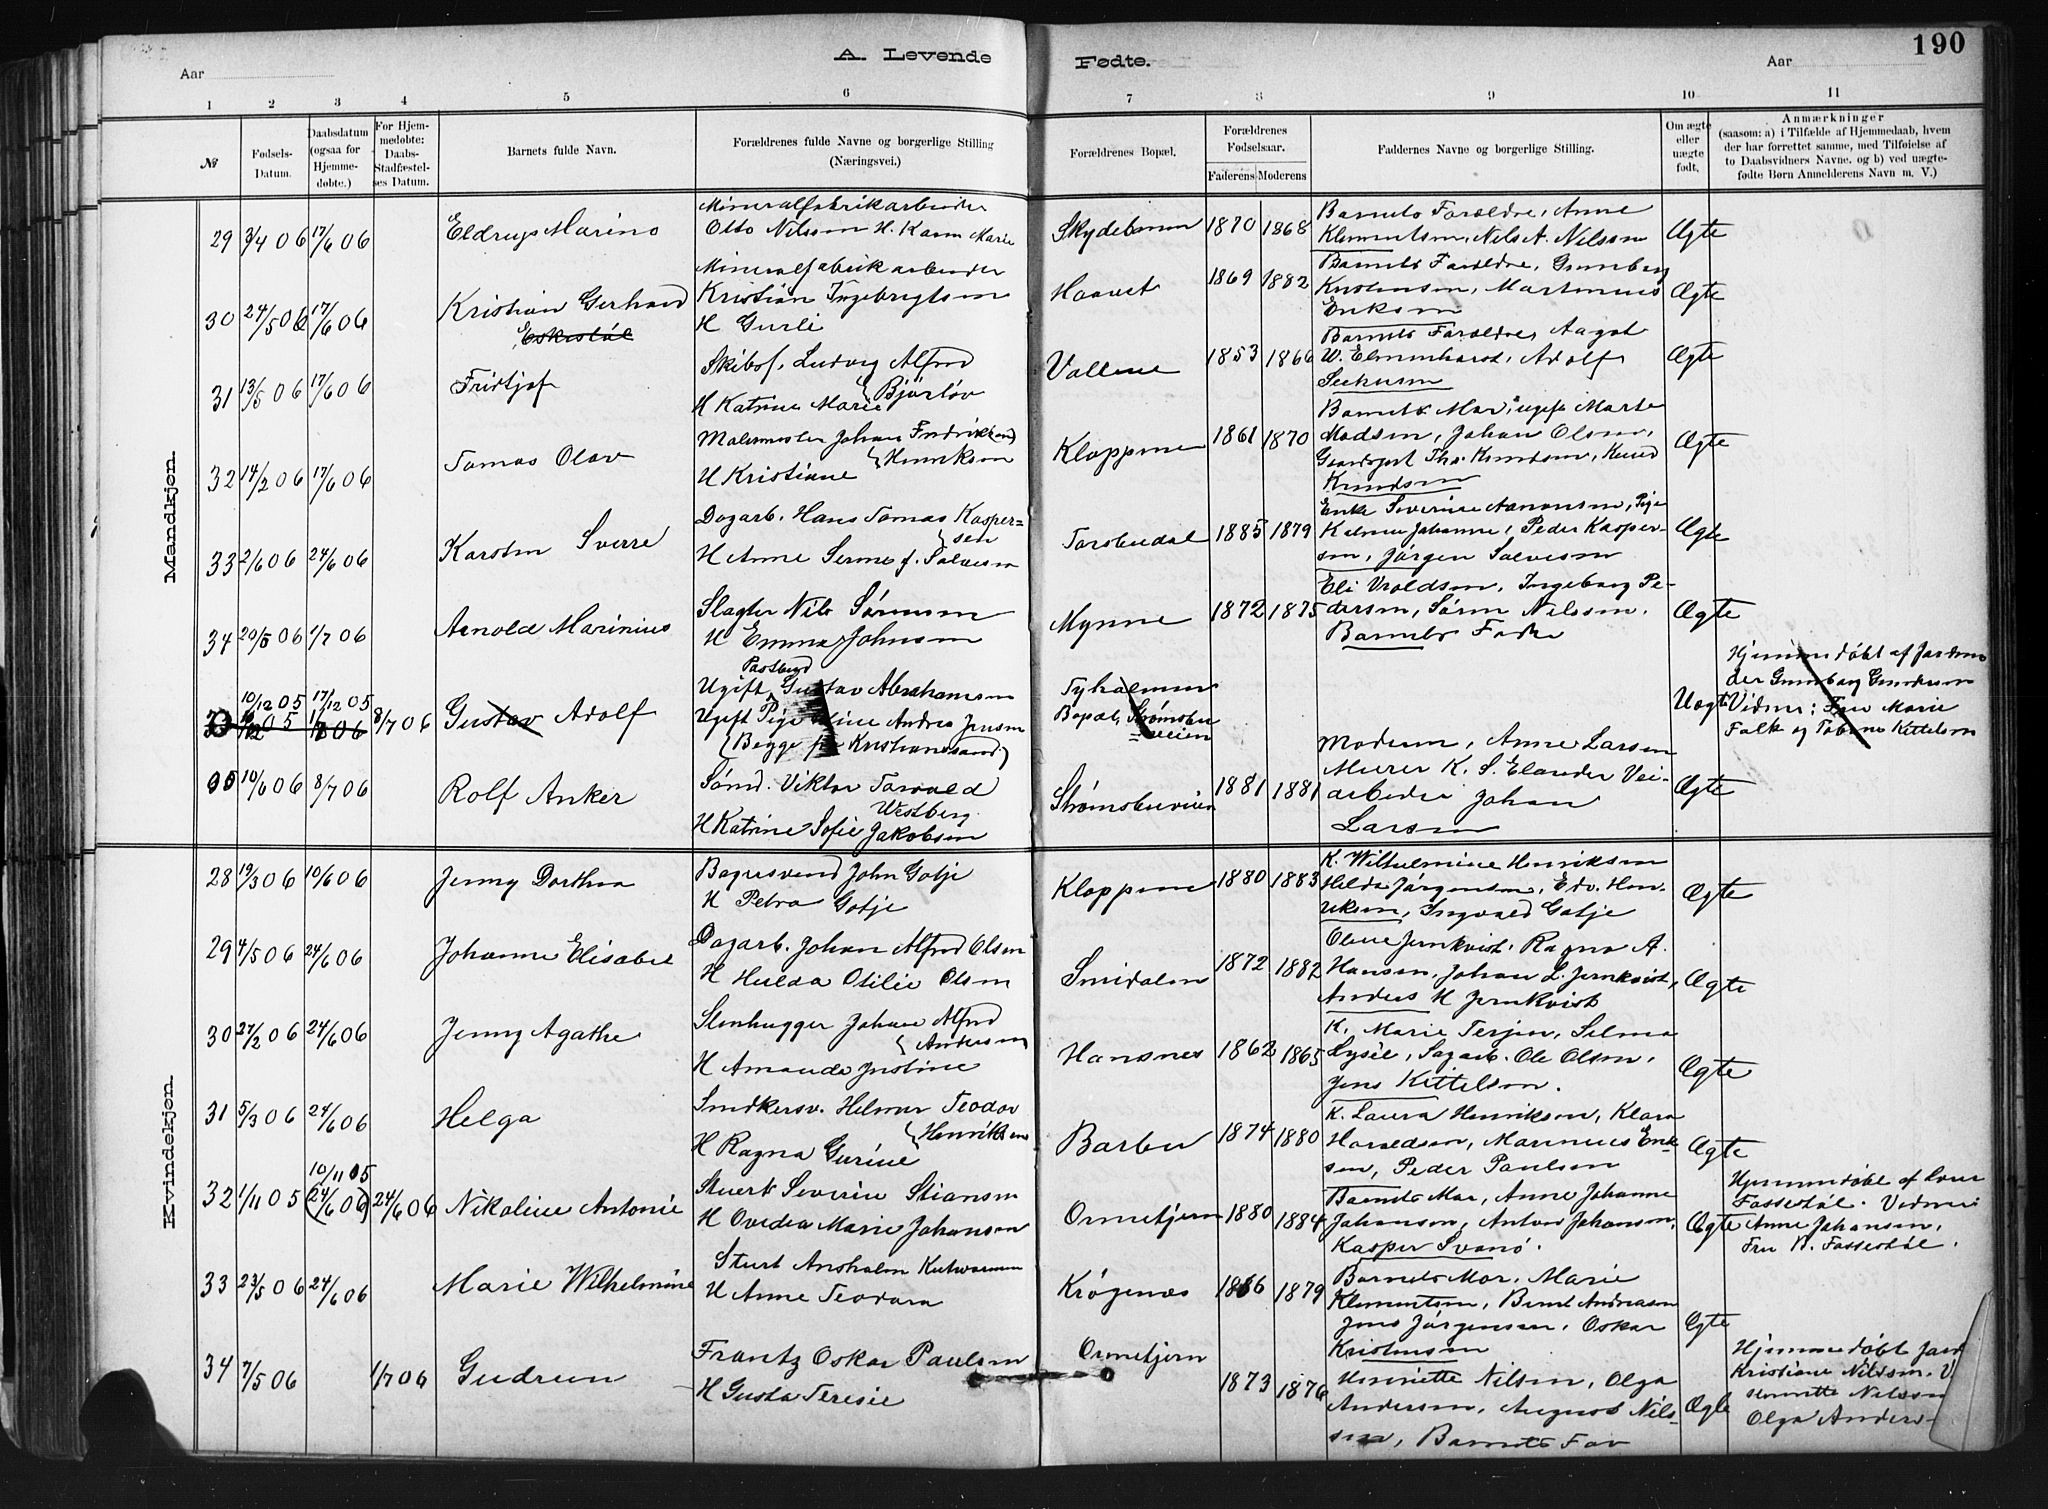 190
A. Levende Fødte.
Aar
Aar
1 2 3 4 5 6 7 8 9 10 11
№
Fødsels-Datum.
Daabsdatum (ogsaa for Hjemme-døbte.)
For Hjem-medøbte: Daabs-Stadfæstel-ses Datum.
Barnets fulde Navn.
Forældrenes fulde Navne og borgerlige Stilling (Næringsvei.)
Forældrenes Bopæl.
Forældrenes Fødselsaar.
Faderens Moderens
Faddernes Navne og borgerlige Stilling.
Om ægte eller uægte født.
Anmærkninger
(saasom: a) i Tilfælde af Hjemmedaab, hvem
der har forrettet samme, med Tilføielse af
to Daabsvidners Navne. og b) ved uægte-
fødte Børn Anmelderens Navn m. V.)
Mandkjøn.
29 3/4 06 17/6 06 Eldrup Marino
Mineralfabrikarbeider
Otto Nilsson H. Karen Marie
1870 1868
Barnets Forældre, Anne
Klementsen, Nils A. Nilsson
Ægte
30 24/5 06 17/6 06 Kristian Gerhard
Mineralfabrikarbeider
Kristian Ingebregtsen
H Gurli
Haavet 1869 1882
Barnets Forældre, Gunborg
Kristensen, Martinius
Eriksen
Ægte
31 13/5 06 17/6 06 Fridtjof
Skibsf. Ludvig Alfred
Bjørløv
H Katrine Marie
Vallene 1853 1866
Barnets Forældre, Aagot
Adolf
Ægte
32 14/2 06 17/6 06 Tomas Olav
Malermester Johan Fredrik
Henriksen
H Kristiane
Kloppene 1861 1870
Barnets Mor, ugift Marte
Madsen, Johan Olsen,
Ths. Knudsen, Knud
Knudsen
Ægte
33 2/6 06 24/6 06 Karsten Sverre
Dagarb. Hans Tomas Kasper-
sen
H Anne Serine f. Salvesen
Torsbudal 1885 1879
Enke Severine Aanonsen, Pige
Johanne, Peder Kasper-
sen, Jørgen Salvesen
Ægte
34 20/5 06 1/7 06 Arnold Marinius
Slagter Nils Sørensen
H Emma Johnsen
Mynne 1872 1875
Eli Vroldsen, Ingeborg Pe-
dersen, Søren Nilsson,
Barnets Fader
Ægte
10/12 05 17/12 05 8/7 06 Gustav Adolf
Postbud
Ugift Gustav Abrahamsen
Ugift Pige Andrea Jensen
(Begge fra Kristianssand)
Tyholmen
Bopæl, Strømsbu
veien
Uægte
Hjemmedøbt af Jordmo
der Gunborg Gundersen
Vidner: Fru Marie
Falk og Tobine Kittelsen
35 10/6 06 8/7 06 Rolf Anker
Sømd. Viktor Torvald
Westberg
H Katrine Sofie Jakobsen
Strømsbuveien 1881 1881
Moderen, Anne Larsen
Murer K. S. Elander Vei-
arbeider Johan
Larsen
Ægte
Kvindekjøn.
28 19/3 06 10/6 06 Jenny Dorthea
Bagersvend John Gotje
H Petra Gotje
Kloppene 1880 1883
K. Wilhelmine Henriksen
Hilda Jørgensen, Edv. Hen-
riksen, Ingvald Gotje
Ægte
29 4/5 06 24/6 06 Johanne Elisabet
Dagarb. Johan Alfred Olsen
H Hulda Otilie Olsen
Smidalen 1872 1882
Oline Jernkvist, Ragna A.
Hansen, Johan L. Jernkvist,
Anders H Jernkvist
Ægte
30 27/2 06 24/6 06 Jenny Agathe
Stenhugger Johan Alfred
Andersen
H Amanda Justine
Hansnes 1862 1865
K. Marie Terjesen, Selma
Lysele, Sagarb. Ole Olsen,
Jens Kittelsen.
Ægte
31 5/3 06 24/6 06 Helga
Smedkersv. Helmer Teodor
Henriksen
H Ragna Gurine
Barbu 1874 1880
K. Laura Henriksen, Klara
Haraldsen, Marinius Erik-
sen, Peder Paulsen
Ægte
32 1/11 05 10/11 05 (24/6 06) 24/6 06 Nikoline Antonie
Stuert Severin Stiansen
H Ovedia Marie Johansen
Ormetjern 1880 1884
Barnets Mor, Anne Johanne
Johansen, Anton Johansen,
Kasper Svanø.
Ægte
Hjemmedøbt af
Fossestøl. Vidner:
Anne Johansen,
Fru B. Fossestøl.
33 23/5 06 24/6 06 Marie Wilhelmine
Stuert Anshelm
H Anne Teodora
Krøgenes 1866 1879
Barnets Mor, Marie
Klementsen, Bernt Andreasen
Jens Jørgensen, Oskar
Kristensen
Ægte
34 7/5 06 1/7 06 Gudrun
Frantz Oskar Paulsen
H Gusta Teresie
Ormetjern 1873 1876
Henriette Nilsen, Olga
Andersen, August Nils-
sen, Barnets Far
Ægte
Hjemmedøbt Jord
Kristiane Nilssen. V
Henriette Nilssen
Olga Anders-